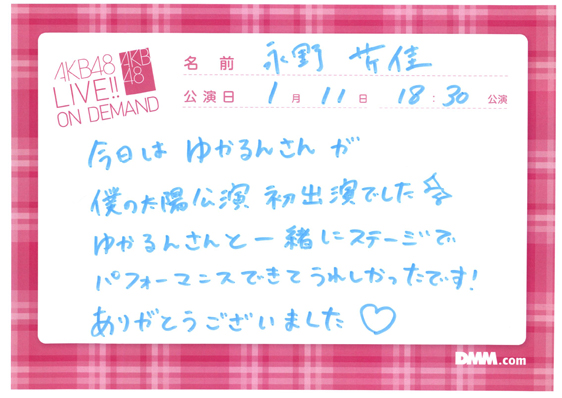 AKB48
LIVE!!
ON DEMAND
AKB
48
名前 永野 芹佳
公演日 1月 11日 18:30 公演
今日は ゆかるんさん が
僕の太陽公演 初出演でした
ゆかるんさんと一緒にステージで
パフォーマンスできてうれしかったです!
ありがとうございました♡
DMM.com